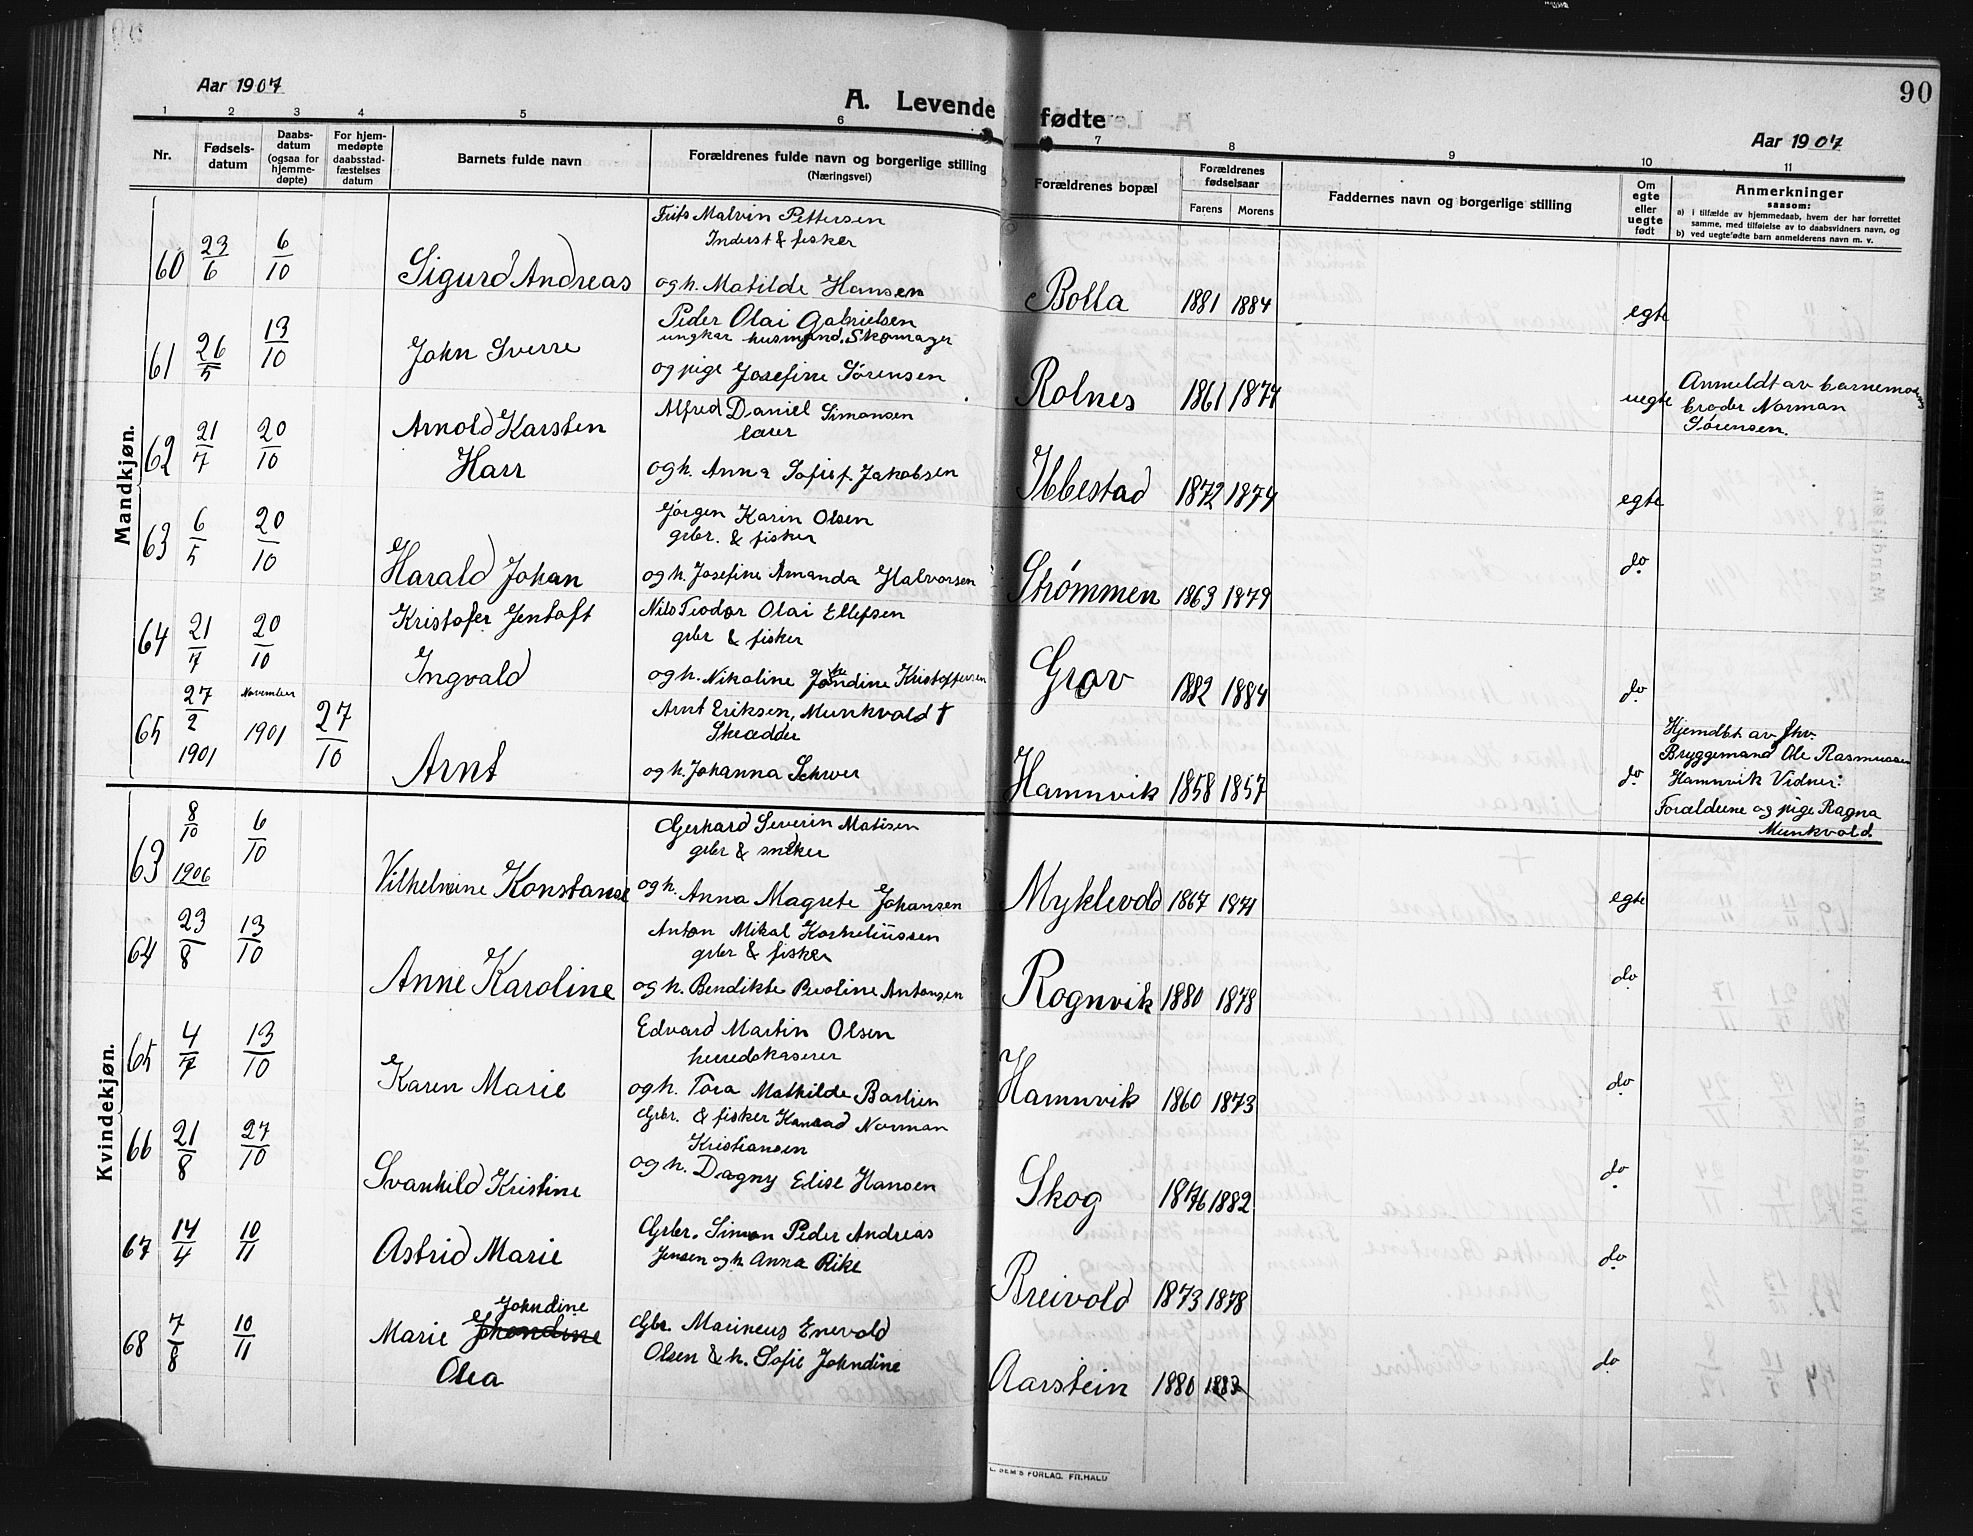 90
Aar 1907
A. Levende fødte
Aar 1907
1 2 3 4 5 6 7 8 9 10 11
Nr.
Fødsels-
datum
Daabs-
datum
(ogsaa for
hjemme-
døpte)
For hjem-
medøpte
daabsstad-
fæstelses
datum
Barnets fulde navn
Forældrenes fulde navn og borgerlige stilling
(Næringsvei)
Forældrenes bopæl
Forældrenes
fødselsaar
Farens Morens
Faddernes navn og borgerlige stilling
Om
egte
eller
uegte
født
Anmerkninger
saasom:
a) i tilfælde av hjemmedaab, hvem der har forrettet
samme, med tilføielse av to daabsvidners navn, og
b) ved uegtefødte barn anmelderens navn m. v.
Mandkjøn.
60 23/6 6/10 Sigurd Andreas
Frits Malvin Pettersen
Inderst & fisker
og h. Matilde Hansen
Bolla 1881 1884 egte
61 26/5 13/10 John Sverre
Peder Olai Gabrielsen
ungkar husmand. Skomager
og pige Josefine Sørensen
Rolnes 1861 1874 uegte
Anmeldt av barnemoders
broder Norman
Sørensen.
62 21/7 20/10 Arnold Karsten
Harr
Alfred Daniel Simonsen
lærer
og h. Anna Sofie f. Jakobsen
Ibbestad 1872 1874 egte
63 6/5 20/10 Harald Johan
Jørgen Karin Olsen
grbr. & fisker
og h. Josefine Amanda Halvorsen
Strømmen 1863 1879 do.
64 21/7 20/10 Kristofer Jentoft
Ingvald
Nils Teodor Olai Ellefsen
grbr & fisker
og h. Nikoline Kristoffersen
Grov 1882 1884 do.
65 27/2 1901 November 1901 27/10 Arnt
Arnt Eriksen, Munkvold †
Skrædder
og h. Johanna Schrver
Hamnvik 1858 1857 do.
Hjemdbt av fhv.
Bryggemand Ole Rasmussen
Hamnvik Vidner:
Forældrene og pige Ragna
Munkvold.
Kvindekjøn.
63 8/10 1906 6/10 Vilhelmine Konstanse
Gerhard Severin Matisen
grbr & snekker
og h. Anna Magrete Johansen
Myklevold 1867 1871 egte
64 23/8 13/10 Anne Karoline
Anton Mikal Korneliussen
grbr & fisker
og h. Bendikte Peroline Antonsen
Rognvik 1880 1878 do.
65 4/7 13/10 Karen Marie
Edvard Martin Olsen
herredskaserer
og h. Tora Mathilde Barlien
Hamnvik 1860 1873 do.
66 21/8 27/10 Svanhild Kristine
Grbr. & fisker Konrad Norman
Kristiansen
og h. Dagny Elise Hansen
Skog 1876 1882 do.
67 14/4 10/11 Astrid Marie
Grbr. Simon Peder Andreas
Jensen og h. Anna Rike
Breivold 1873 1878 do.
68 7/8 10/11 Marie Johndine
Olea
Gbr. Marineus Enevold
Olsen & h. Sofie Johndine
Aarstein 1880 1883 do.
SEM'S FORLAG. FR.HALD